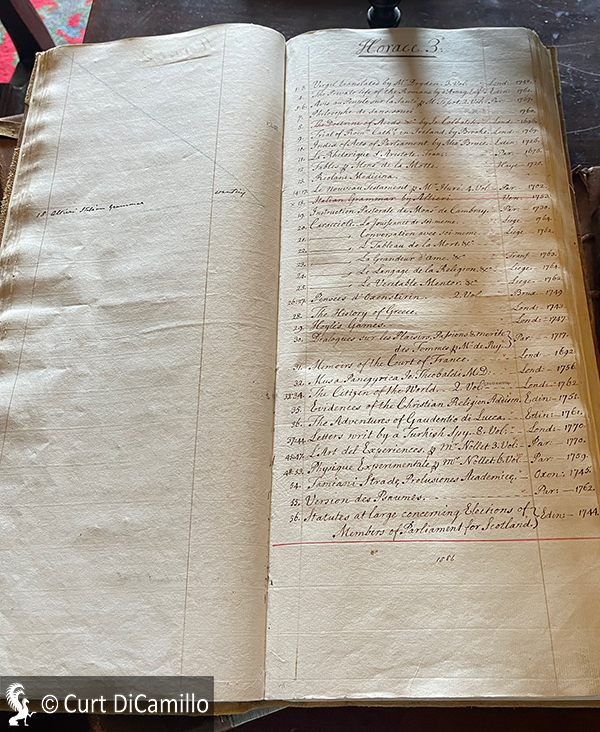 18 Altieri Italian Grammar wanting
Horace 3.
Virgil translated by Mr. Dryden. 3. Vol. Lond:
The Private life of the Romans by d'Arnay Edin:
Avis au Peuple sur la Santé p M. Tissot. 2. Vol. Par
Philosophe de Sanssouci 1760
The Doctrine of Acids &c. by Jn. Colbatch Lond:
Trial of Rom. Cath: in Ireland by Brooke. Lond:
Index of Acts of Parliament by Alex. Bruce. Edin:
La Rhetorique d'Aristote. Franc: Par
Fables p Mons. de la Motte. Haye.
Riolani Medicina.
Le Nouveau Testament p Mr. Huré. 4. Vol Par 1702.
18. Italian Grammar by Altieri Ven
19. Instruction Pastorale de Mons. de Cambray. Par
20. Caraccioli. La Jouissance de soi-meme. Liege. 1764.
21. Conversation avec soi-meme. Liege. 1762.
22. Le Tableau de la Mort. &c.
23. La Grandeur d'Ame. &c. Franf 1762.
24. Le Langage de la Religion. &c. Liege.
25. Le Veritable Mentor. &c. Liege. 1762.
26.27. Pensees d'Oxenstirn. 2. Vol. Brux 1749.
28. The History of Greece. Lond: 1743.
29. Hoyle's Games. Lond: 1747.
30. Dialogues sur les Plaisirs, Passions & merite Par: 1717.
des Femmes p Mr. de Puy.
31. Memoirs of the Court of France. Lond: 1692.
32. Musa Panegyrica Jo. Theobaldi M.D. Lond: 1756.
33.34. The Citizen of the World. 2. Vol. Lond: 1762.
35. Evidences of the Christian Religion. Addison. Edin: 1751.
36. The Adventures of Gaudentio di Lucca. Edin: 1761.
37.44. Letters writ by a Turkish Spy. 8. Vol: Lond: 1770.
45.47. L'Art det Experiences, p Mr. Nollet 3. Vol: Par 1770.
48.53. Physique Experimentale p Mr. Nollet. 6. Vol Par 1759.
54. Famiani Stradæ, Prolusiones Academicæ. Oxon: 1745.
55. Version des Psaumes. Par: 1762.
56. Statutes at large concerning Elections of Edin: 1744.
Members of Parliament for Scotland.
1886
© Curt DiCamillo